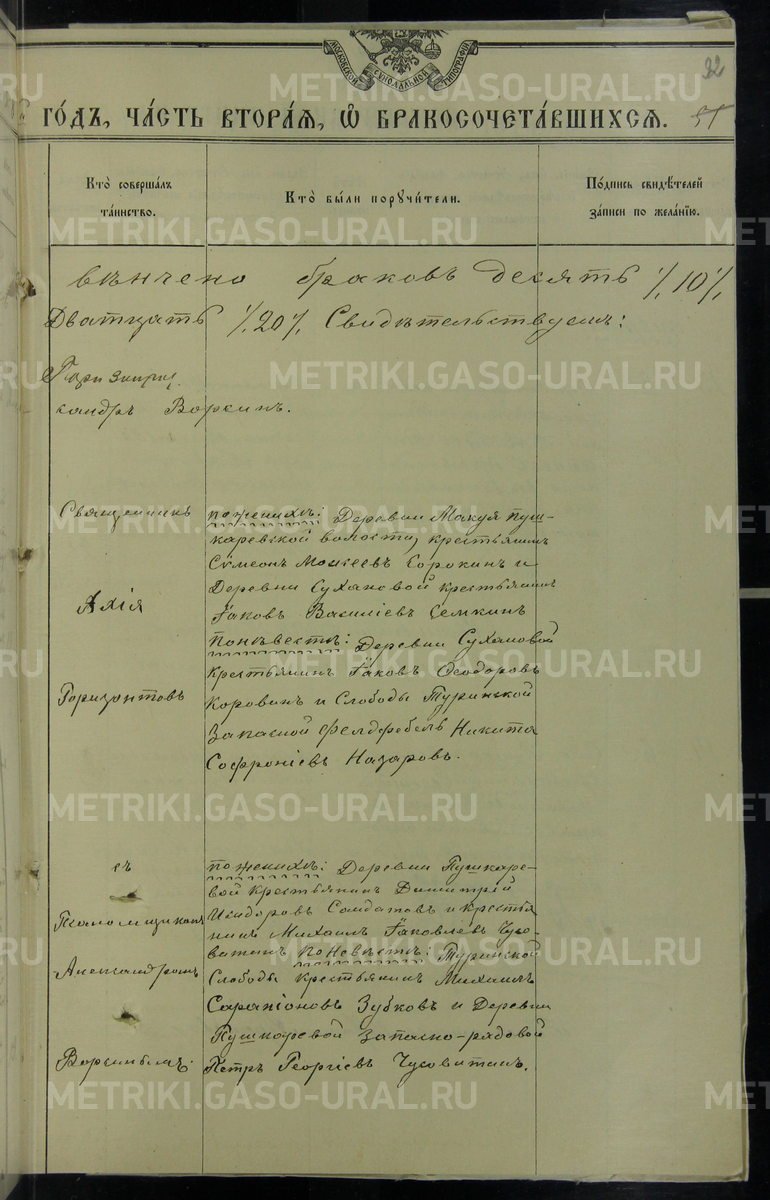 МОСКОВСКОЙ СѴНОДАЛЬНОЙ ТИПОГРАФІИ
32
ГО́ДЪ, ЧА́СТЬ ВТОРА́Я, Ѽ БРАКОСОЧЕТА́ВШИХСЯ.
57
Кто̀ соверша́лъ та́инство.
Кто̀ бы́ли порꙋчи́тели.
По́дпись свидѣ́телей за́писи по жела́нїю.
вѣнчено браковъ десять ٪ 10 ٪
Дватцать ٪ 20 ٪ Свидѣтельствуемъ:
сандръ Ворсинъ.
Священникъ
Ахія
Горизонтовъ
по женихѣ: Деревни Макуя Пуш-
каревской волости, крестьянинъ
Сѵмеонъ Моисеевъ Сорокинъ и
Деревни Сухановой крестьянинъ
Іаковъ Василіевъ Семкинъ
по невѣстѣ: Деревни Сухановой
крестьянинъ Іаковъ Ѳеодоровъ
Коровинъ и Слободы Туринской
Запасной фелдфебель Никита
Софроніевъ Назаровъ.
съ
Псаломщикомъ
Александромъ
Ворсинымъ.
по женихѣ: Деревни Пушкаре-
вой крестьянинъ Димитрій
Исидоровъ Солдатовъ и крестья
нинъ Михаилъ Іаковлевъ Чусо-
витинъ по невѣстѣ: Туринской
Слободы крестьянинъ Михаилъ
Сарапіоновъ Зубковъ и Деревни
Пушкаревой запасно-рядовой
Петръ Георгіевъ Чусовитинъ.
METRIKI.GASO-URAL.RU